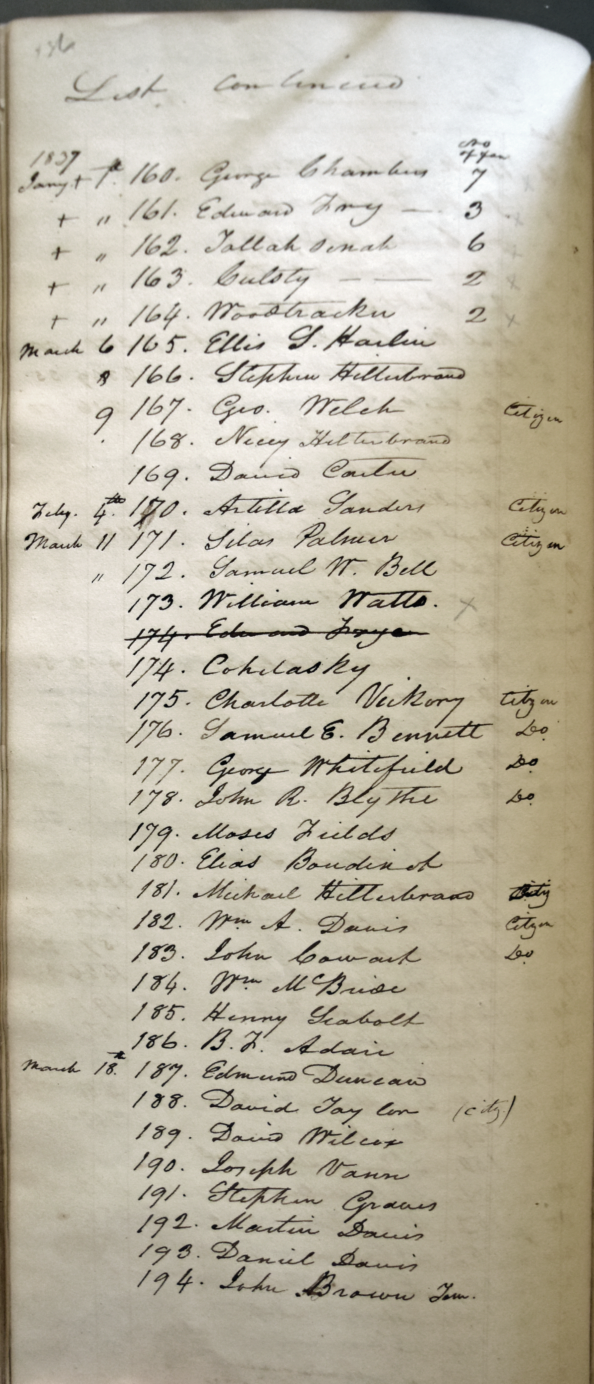 36
List continued
1837
No
of fam
Jany + 1st 160. George Chambers 7
+ " 161. Edward Fry — 3
+ " 162. Tallah 6
+ " 163. Culsty — — 2
+ " 164. Woodtracker 2
March 6 165. Ellis S. Harlin
8 166. Stephen Hilterbrand
9 167. Geo. Welch Citizen
168. Nicey Hilterbrand
169. David Carter
Feby. 4th 170. Artilla Sanders Citizen
March 11 171. Silas Palmer Citizen
" 172. Samuel W. Bell
173. William Watts. x
174. Edward Frye
174. Cohelasky
175. Charlotte Vickory Citzen
176. Samuel E. Bennett Do
177. George Whitefield Do
178. John R. Blythe Do
179. Moses Fields
180. Elias Boudinot
181. Michael Hilterbrand
182. Wm A. Davis Citizen
183. John Cowart Do
184. Wm McBride
185. Henry Seabolt
186. B. F. Adair
March 18th 187. Edmund Duncan
188. David Taylor (city)
189. David Wilcox
190. Joseph Vann
191. Stephen Graves
192. Martin Davis
193. Daniel Davis
194. John Brown Jun.